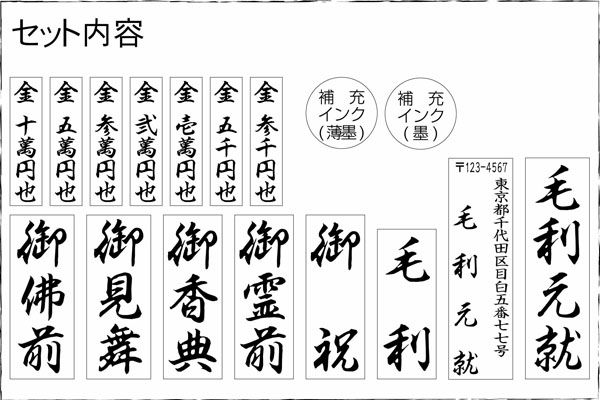 セット内容
金 十萬円也
金 五萬円也
金 参萬円也
金 弐萬円也
金 壱萬円也
金 五千円也
金 参千円也
補 充
インク
(薄墨)
補 充
インク
(墨)
御佛前
御見舞
御香典
御霊前
御祝
毛利
〒123-4567
東京都千代田区目白五番七七号
毛利元就
毛利元就